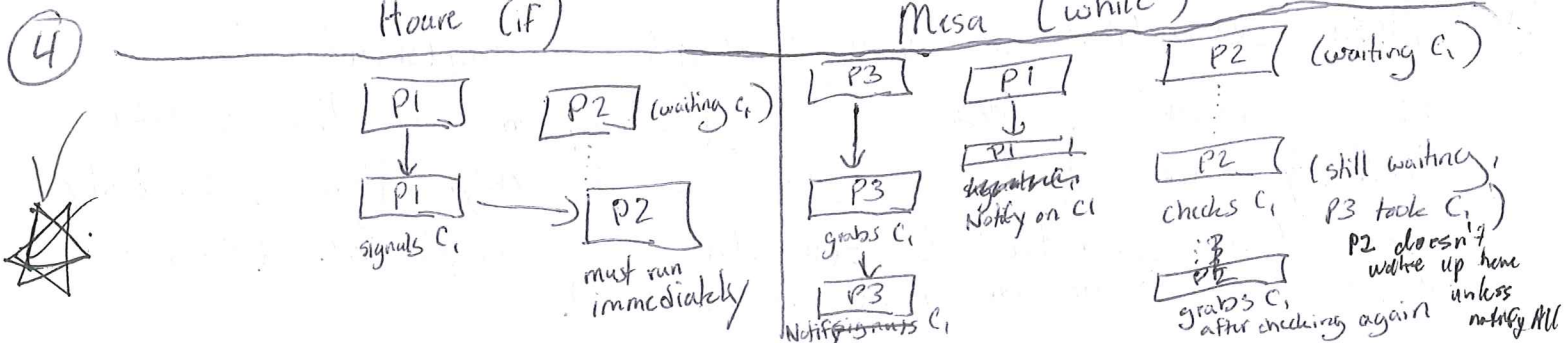 4
Hoare (if)
Mesa (while)
P1
P2 (waiting C1)
P1
signals C1
P2
must run
immediately
P3
P3
grabs C1
P3
Notify C1
P1
P1
Notify on C1
P2 (waiting C1)
P2 (still waiting,
checks C1 P3 took C1)
P2 doesn't
wake up here
unless
notify All
P2
grabs C1
after checking again